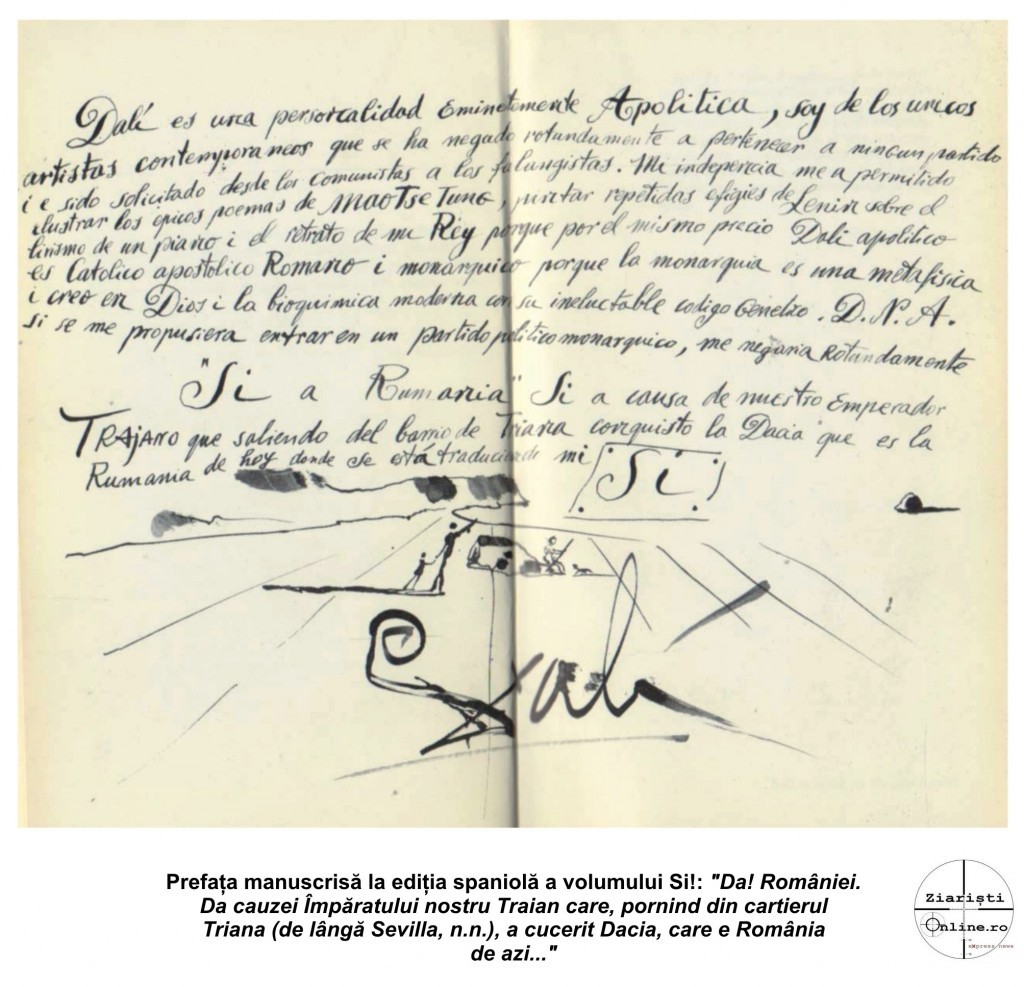 Dalí es una personalidad Eminetemente Apolitica, soy de los unicos
artistas contemporaneos que se ha negado rotundamente a pertenecer a ningun partido
i e sido solicitado desde los comunistas a los falangistas. Mi indepencia me a permitido
ilustrar los epicos poemas de MAO TSE TUNG, pintar repetidas efigies de Lenin sobre el
lirismo de un piano i el retrato de mi Rey porque por el mismo precio Dalí apolitico
es Catolico apostolico Romano i monarquico porque la monarquia es una metafisica
i creo en Dios i la bioquimica moderna con su ineluctable codigo Genetico. D.N.A.
Si se me propusiera entrar en un partido politico monarquico, me negaria Rotundamente
"Si a Rumania" Si a causa de nuestro Emperador
TRAJANO que saliendo del barrio de Triana conquisto la Dacia que es la
Rumania de hoy donde se está traduciendo mi Si
Dalí
Prefața manuscrisă la ediția spaniolă a volumului Si!: "Da! României.
Da cauzei Împăratului nostru Traian care, pornind din cartierul
Triana (de lângă Sevilla, n.n.), a cucerit Dacia, care e România
de azi..."
Ziariști
Online.ro
express news